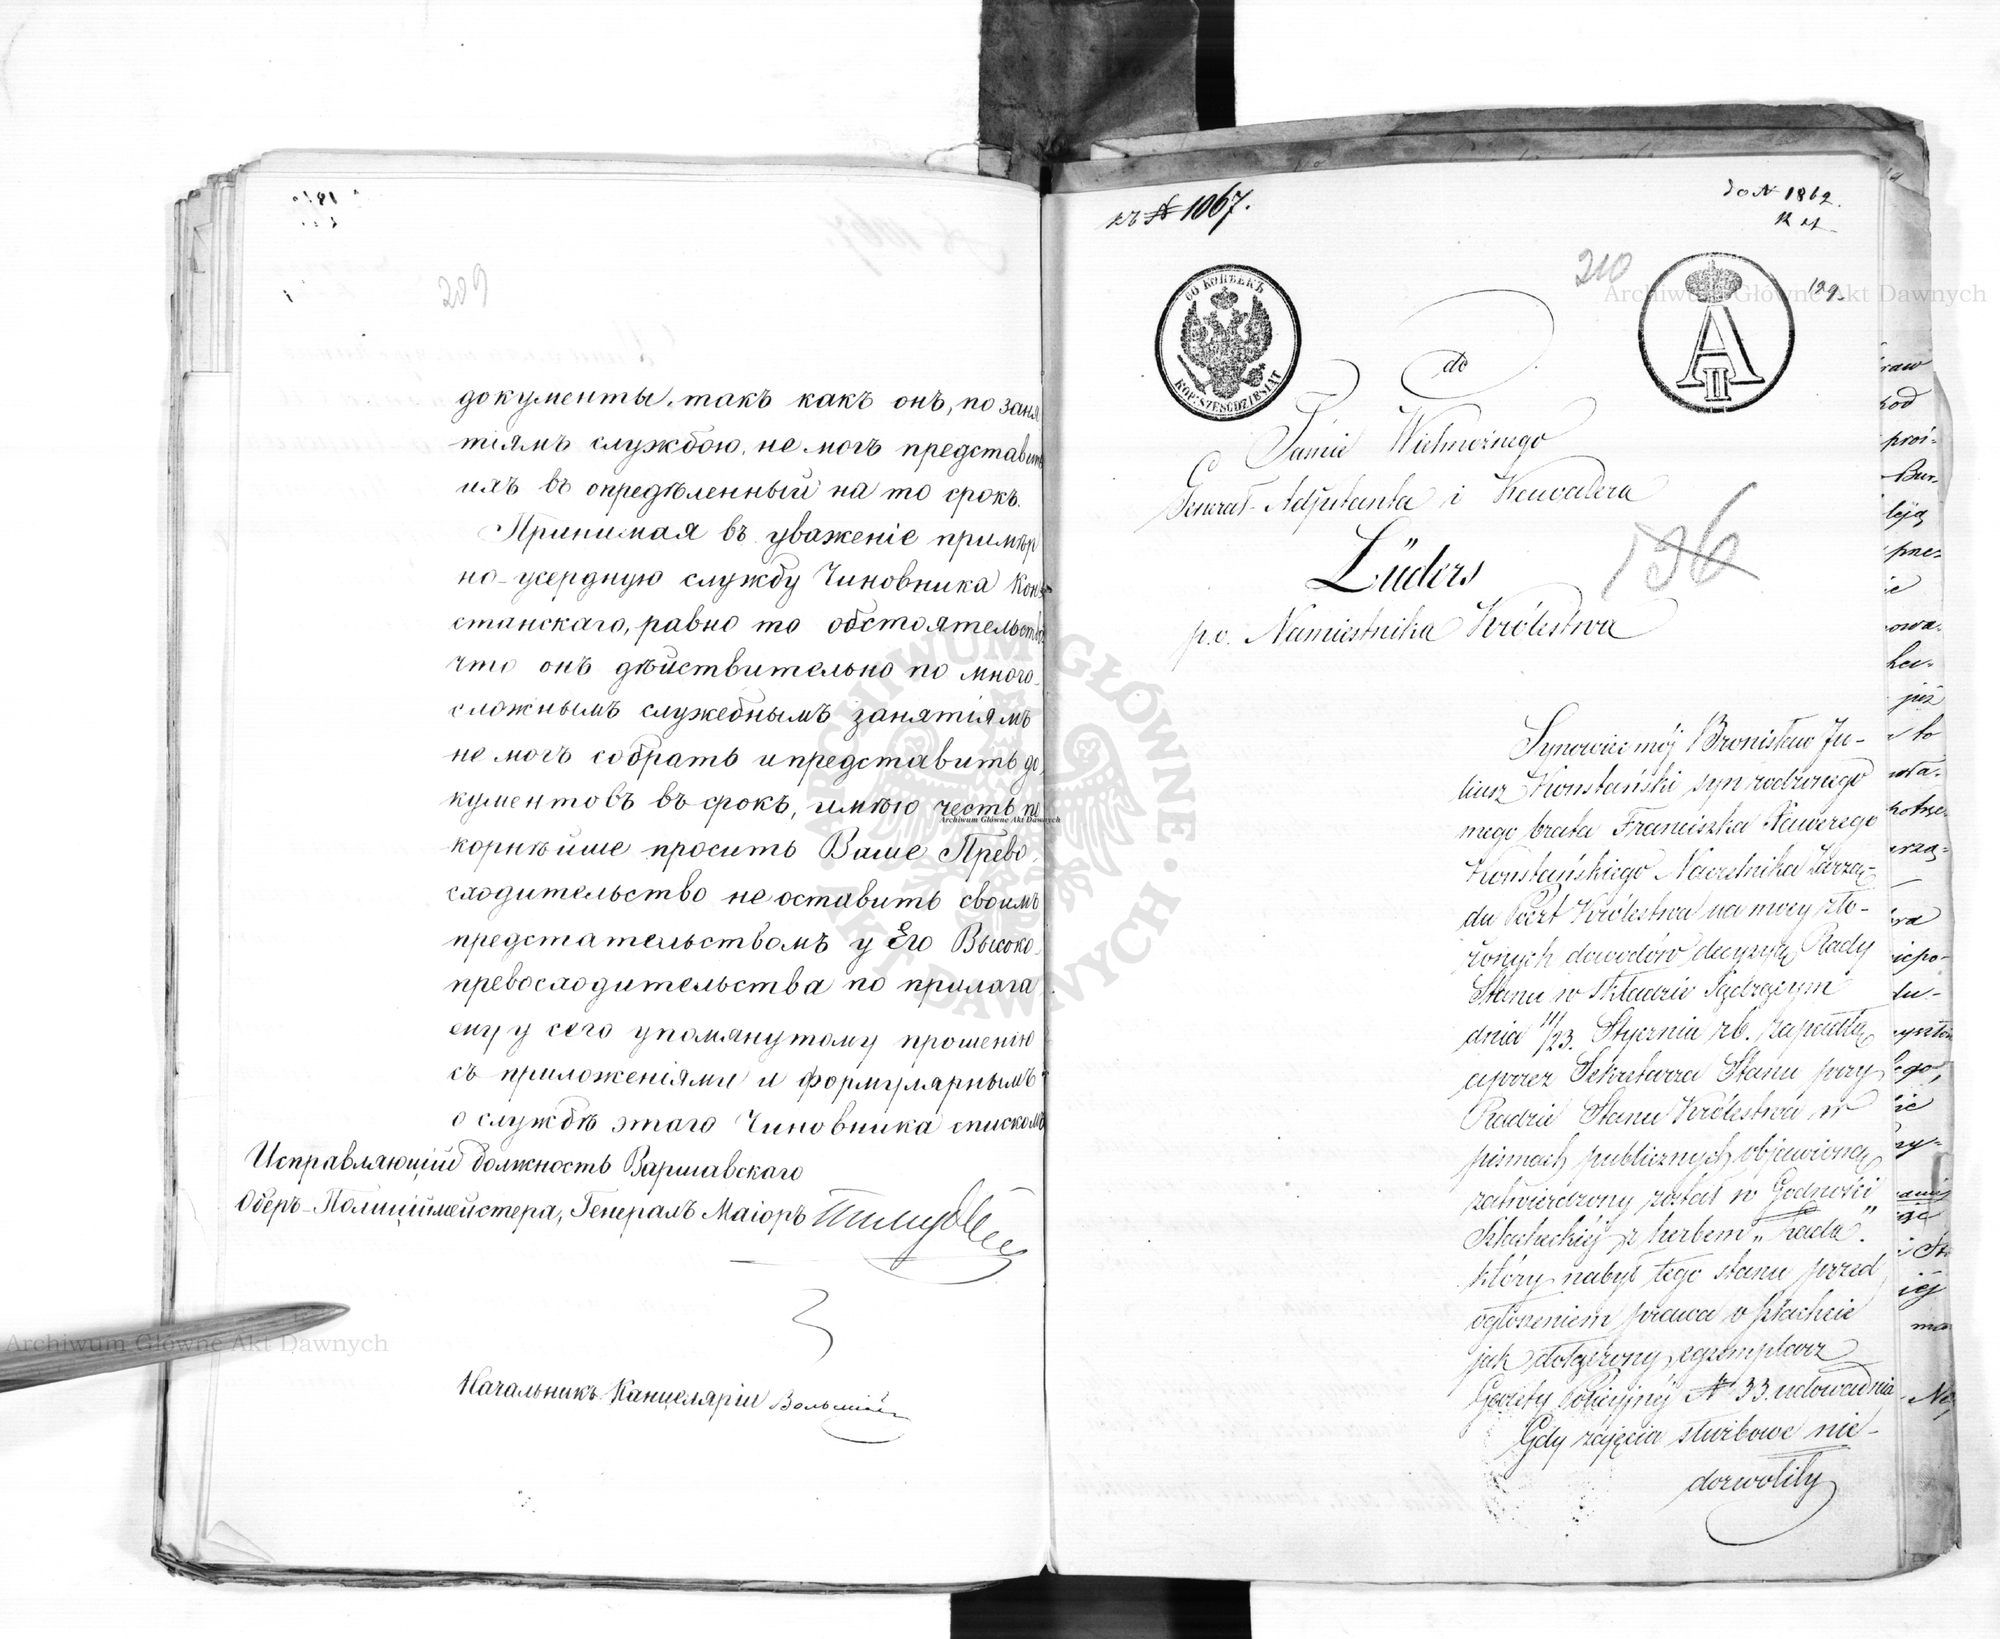 209
документы, такъ какъ онъ, по заня
тіямъ службою, не могъ представить
ихъ въ опредѣленный на то срокъ.
Принимая въ уваженіе примѣр
но-усердную службу Чиновника Кон
станскаго, равно то обстоятельство
что онъ дѣйствительно по много-
сложнымъ служебнымъ занятіямъ
не могъ собрать и представить до
кументовъ въ срокъ, имѣю честь по
корнѣйше просить Ваше Прево
сходительство не оставить своимъ
предстательствомъ у Его Высоко-
превосходительства по прилага
ему у сего упомянутому прошенію
съ приложеніями и формулярнымъ
о службѣ этого Чиновника спискомъ
Исправляющій должность Варшавскаго
Оберъ-Полиціймейстера, Генералъ Маіоръ
Начальникъ Канцеляріи
къ № 1067.
do N 1862
210
129.
60 КОПѢЕКЪ
KOP. SZEŚĆDZIESIĄT
A II
do
Jaśnie Wielmożnego
Generał-Adjutanta i Kawalera
Lüders
p.o. Namiestnika Królestwa
196
Synowiec mój Bronisław Ju-
liusz Konstański syn rodzonego
mego brata Franciszka Xawerego
Konstańskiego Naczelnika Zarzą-
du Poczt Królestwa na mocy zło-
żonych dowodów decyzyą Rady
Stanu w Składzie Sądzącym
dnia 11/23. Stycznia rb. zapadłą
a przez Sekretarza Stanu przy
Radzie Stanu Królestwa w
pismach publicznych objawioną
zatwierdzony został w Godności
Szlacheckiéj z herbem „Rada"
który nabył tego stanu przed
ogłoszeniem prawa o szlachcie
jak dołączony egzemplarz
Gazety Policyjnéj № 33. udowadnia
Gdy zajęcia służbowe nie-
dozwoliły
Archiwum Główne Akt Dawnych
Archiwum Główne Akt Dawnych
Archiwum Główne Akt Dawnych
ARCHIWUM GŁÓWNE AKT DAWNYCH